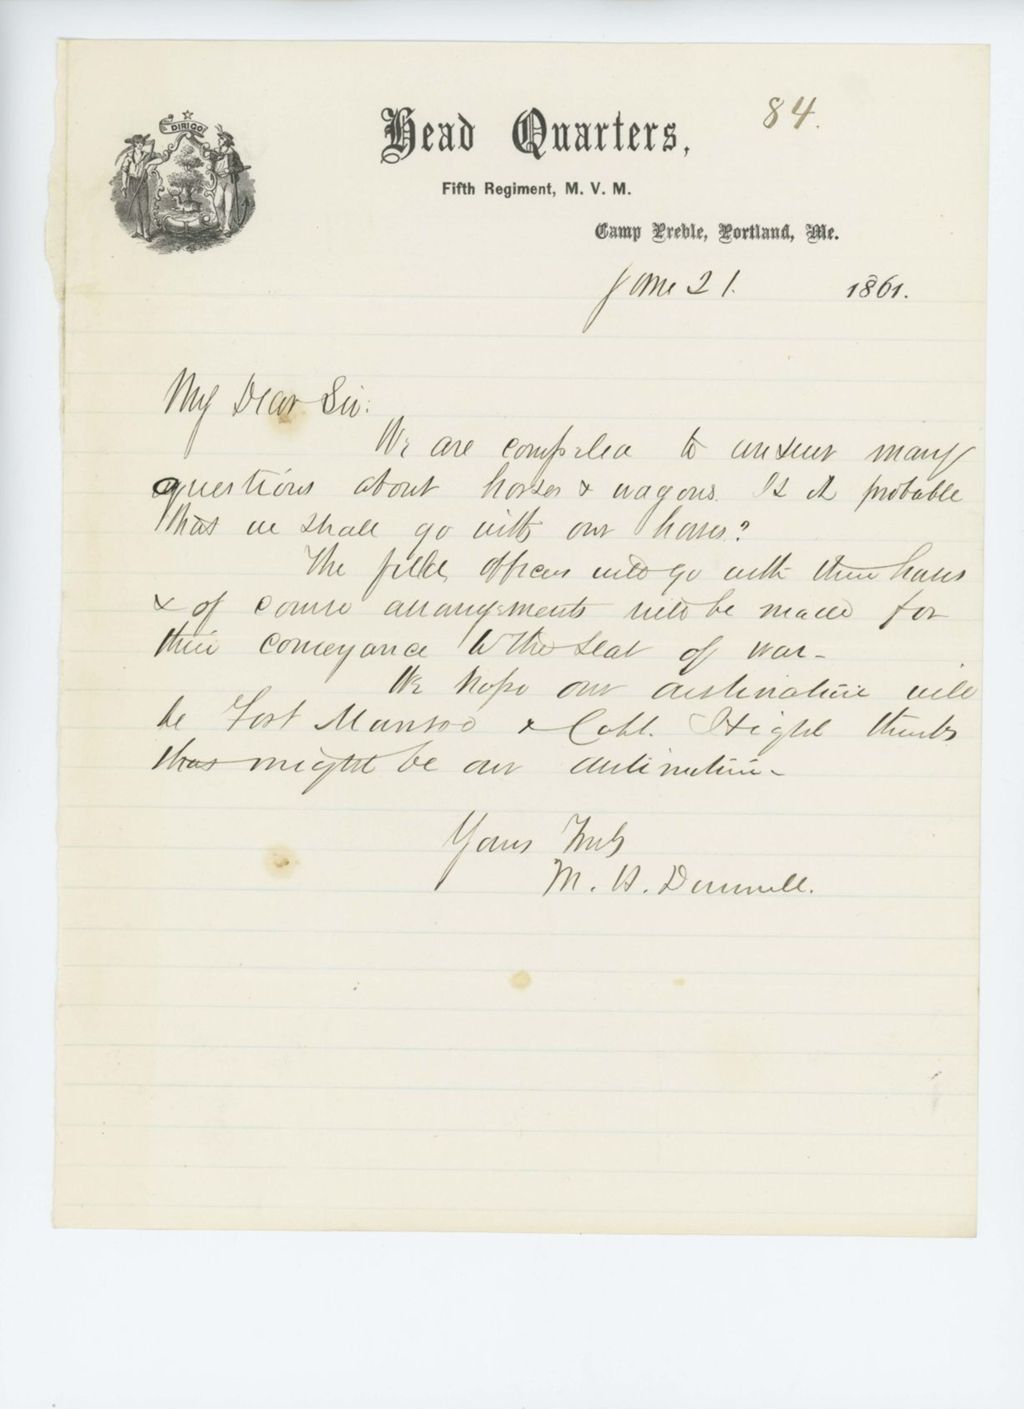 DIRIGO
84.
Head Quarters,
Fifth Regiment, M. V. M.
Camp Preble, Portland, Me.
June 21. 1861.
My Dear Sir:
We are compelled to answer many
questions about horses & wagons. Is it probable
that we shall go with our horses?
The field officers will go with their horses
& of course arrangements will be made for
their conveyance to the seat of war -
We hope our destination will
be Fort Munroe & Capt. Hight thinks
that might be our destination -
Yours Truly
M. H. Dunnell.